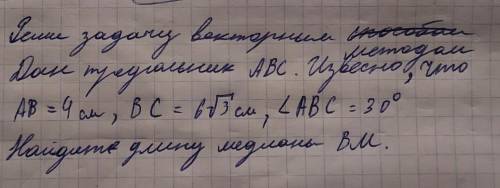 Реши задачу векторным способом
методом
Дан треугольник ABC. Извесно, что
AB = 4 см, BC = 6√3 см, ∠ABC = 30°
Найдите длину медианы BM.